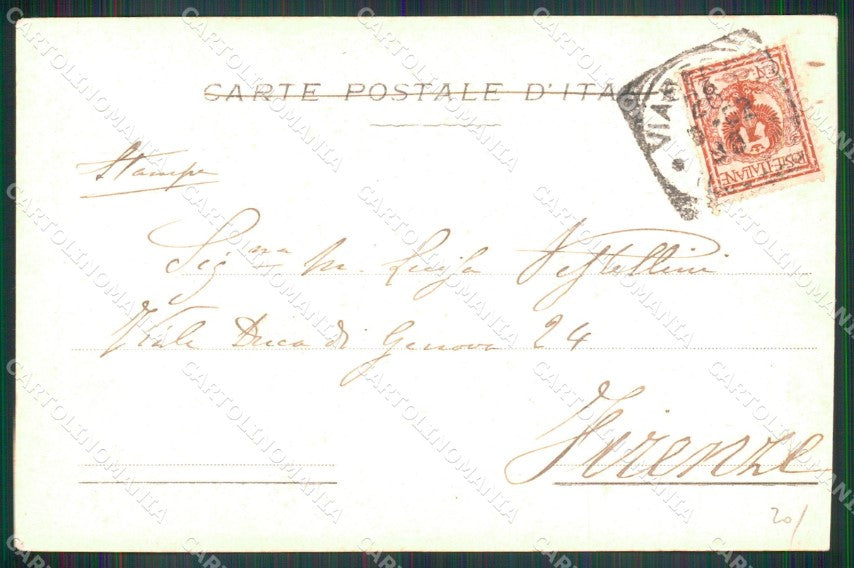 CARTE POSTALE D'ITAL
VIAR
POSTE ITALIANE
Stampe
Sig.na M. Luisa
Viale Duca di Genova 24
Firenze
20/
CARTOLINOMANIA